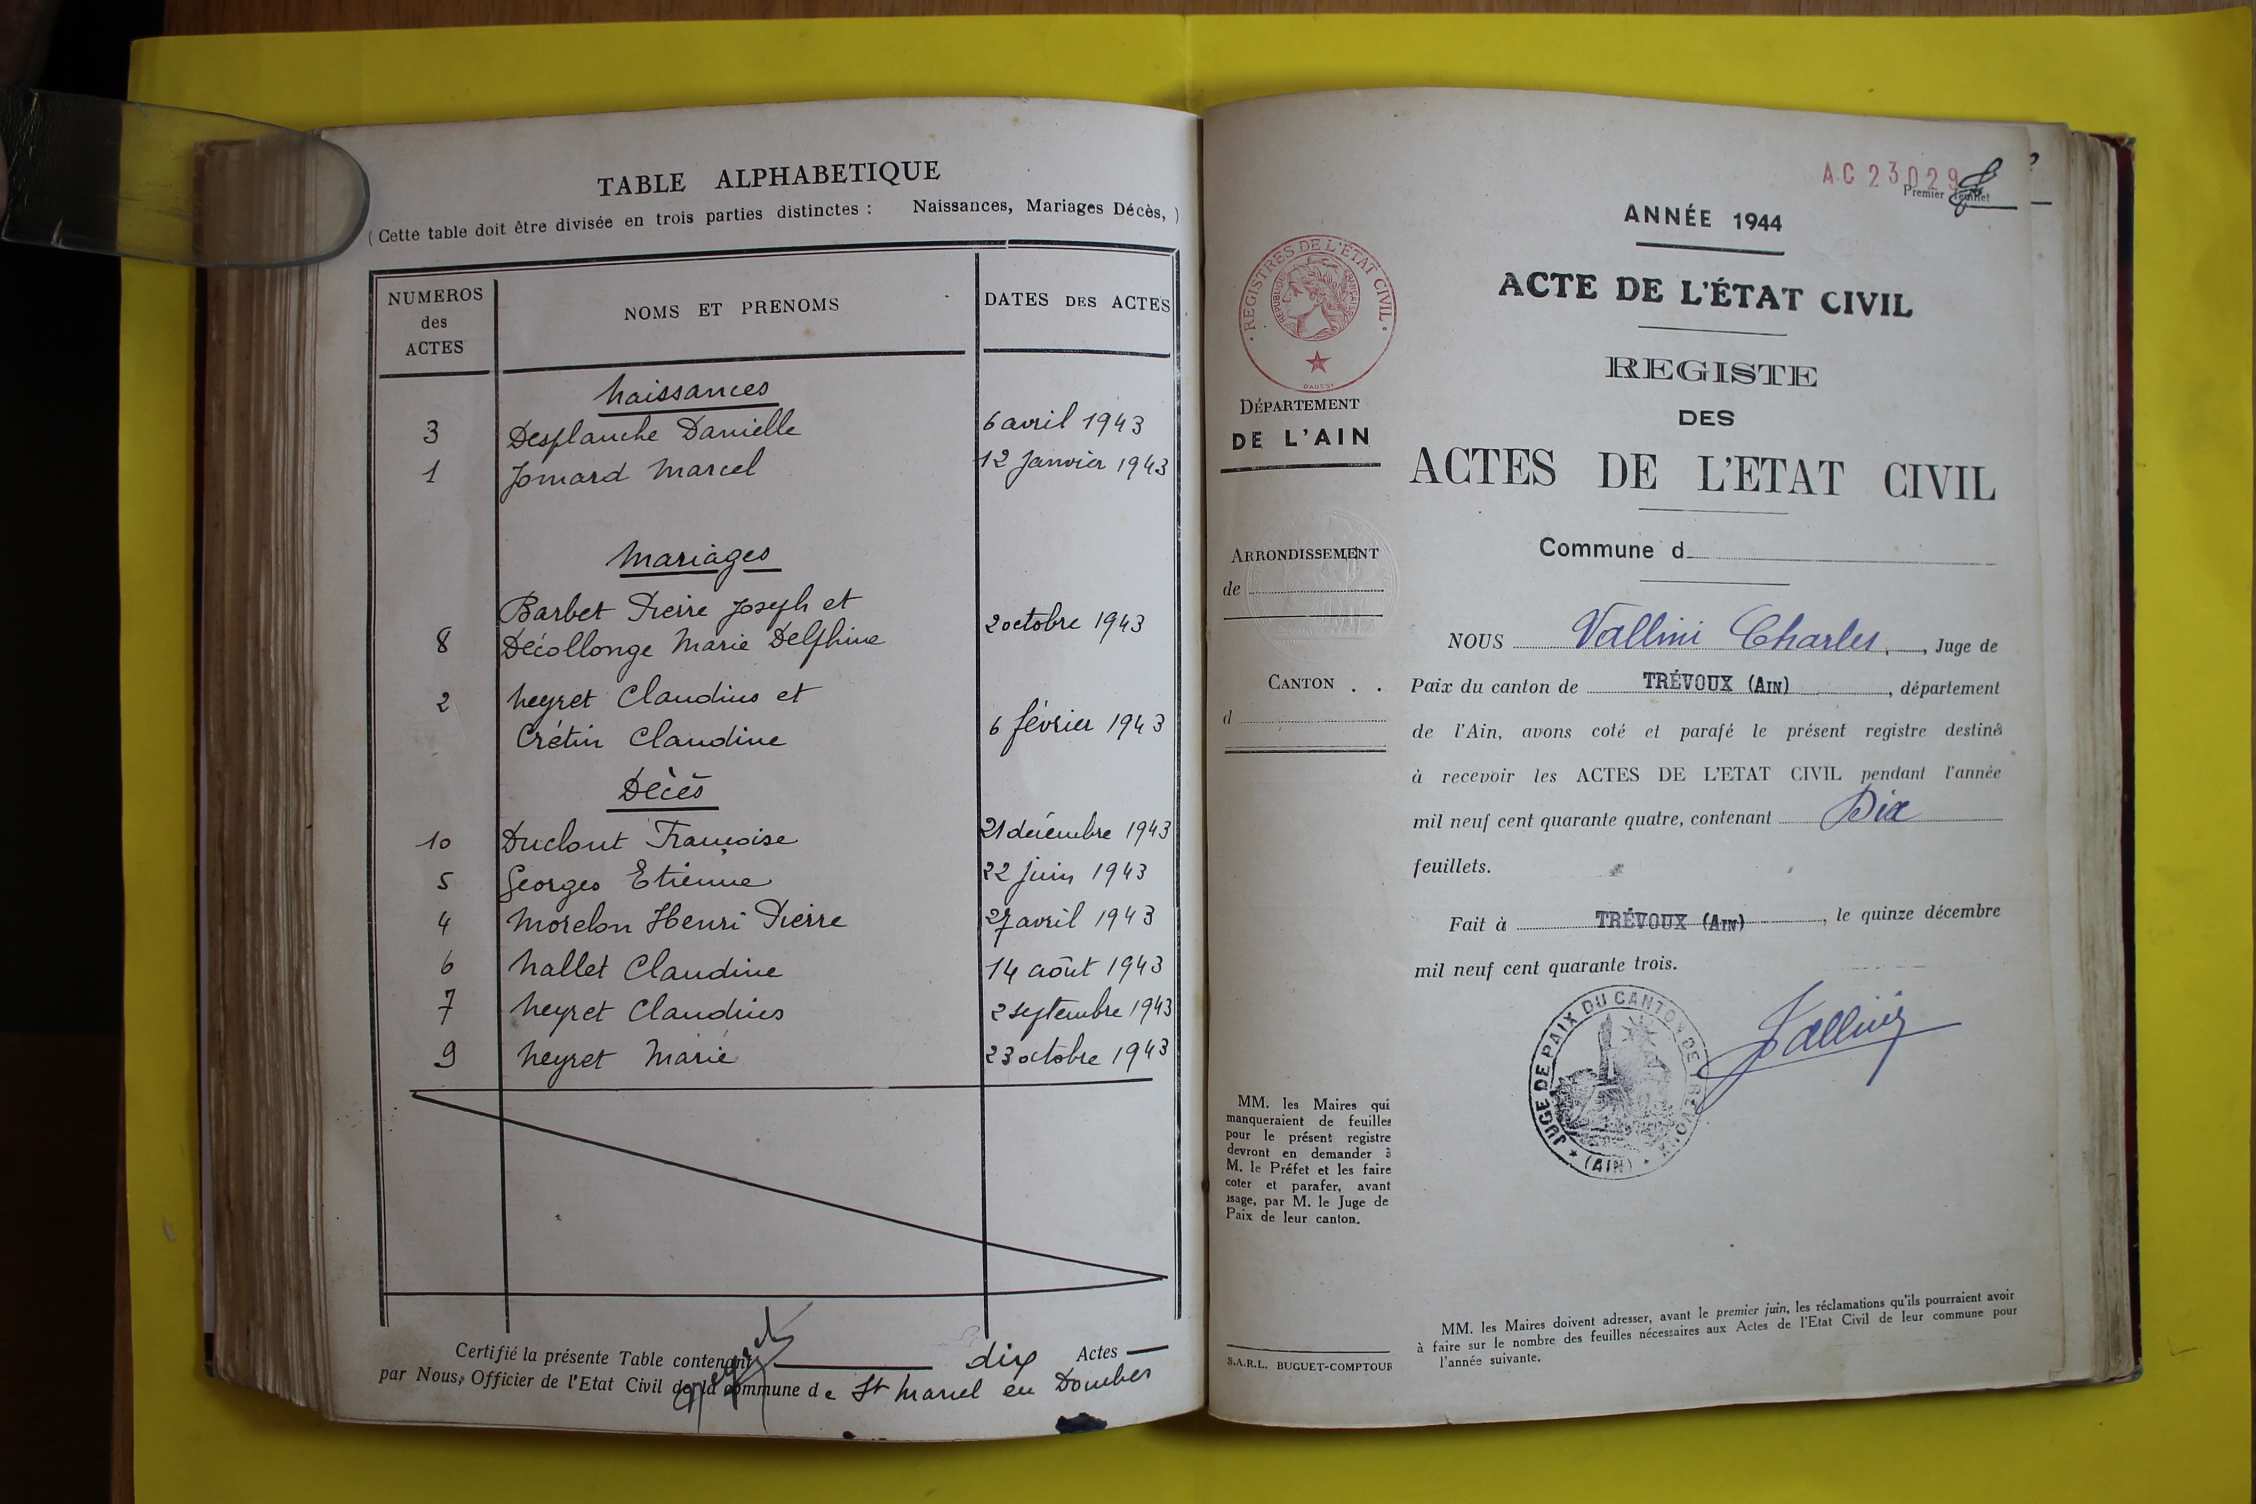 TABLE ALPHABETIQUE
(Cette table doit être divisée en trois parties distinctes : Naissances, Mariages Décès, )
NUMEROS des ACTES
NOMS ET PRENOMS
DATES DES ACTES
Naissances
3 Desplanche Danielle 6 avril 1943
1 Jomard Marcel 12 janvier 1943
Mariages
Barbet Pierre Joseph et
8 Décollonge Marie Delphine 2 octobre 1943
2 Neyret Claudius et
Crétin Claudine 6 février 1943
Décès
10 Duclout Françoise 21 décembre 1943
5 Georges Etienne 22 juin 1943
4 Morelon Henri Pierre 27 avril 1943
6 Nallet Claudine 14 août 1943
7 Neyret Claudius 2 septembre 1943
9 Neyret Marie 23 octobre 1943
Certifié la présente Table contenant dix Actes
par Nous, Officier de l'Etat Civil de la commune de St Marcel en Dombes
AC 23029
Premier feuillet
ANNÉE 1944
ACTE DE L'ÉTAT CIVIL
REGISTE
DES
ACTES DE L'ETAT CIVIL
Commune d
NOUS Vallini Charles, Juge de
Paix du canton de TRÉVOUX (AIN), département
de l'Ain, avons coté et parafé le présent registre destiné
à recevoir les ACTES DE L'ETAT CIVIL pendant l'année
mil neuf cent quarante quatre, contenant Dix
feuillets.
Fait à TRÉVOUX (AIN), le quinze décembre
mil neuf cent quarante trois.
JUGE DE PAIX DU CANTON DE TREVOUX
(AIN)
Vallini
MM. les Maires doivent adresser, avant le premier juin, les réclamations qu'ils pourraient avoir
à faire sur le nombre des feuilles nécessaires aux Actes de l'Etat Civil de leur commune pour
l'année suivante.
REGISTRES DE L'ÉTAT CIVIL
REPUBLIQUE FRANÇAISE
DÉPARTEMENT
DE L'AIN
ARRONDISSEMENT
de
CANTON . .
d
MM. les Maires qui
manqueraient de feuilles
pour le présent registre
devront en demander à
M. le Préfet et les faire
coter et parafer, avant
usage, par M. le Juge de
Paix de leur canton.
S.A.R.L. BUGUET-COMPTOUR